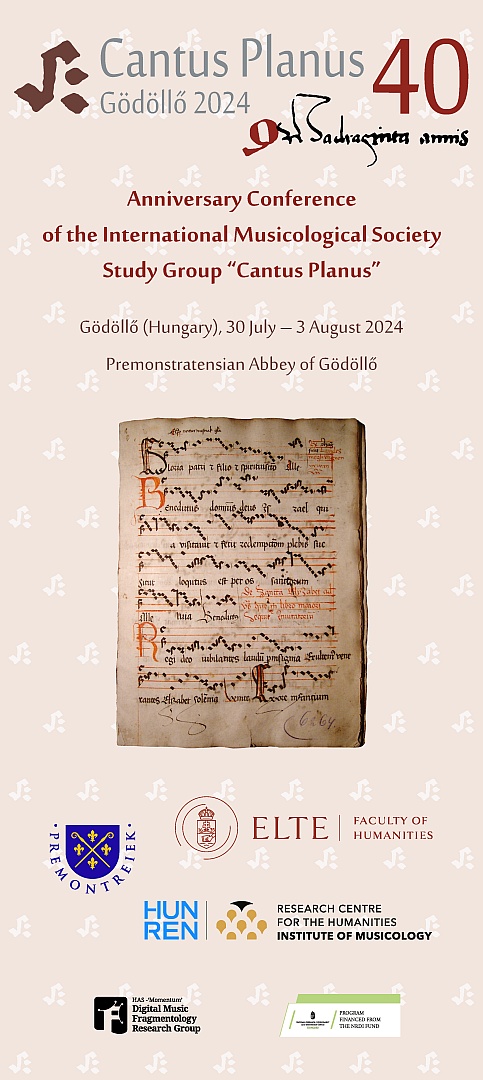 Cantus Planus 40
Gödöllő 2024
Quadraginta annis
Anniversary Conference
of the International Musicological Society
Study Group “Cantus Planus”
Gödöllő (Hungary), 30 July – 3 August 2024
Premonstratensian Abbey of Gödöllő
Gloria patri
filio
Benedictus dominus deus
zael qui
a visitavit
plebis sue
sicut locutus est per os sanctorum
Alle
tua
Regi deo iubilantes
rantes Elizabet
6664.
PREMONTREIEK
ELTE
FACULTY OF
HUMANITIES
HUN
REN
RESEARCH CENTRE
FOR THE HUMANITIES
INSTITUTE OF MUSICOLOGY
HAS -‘Momentum’
Digital Music
Fragmentology
Research Group
PROGRAM
FINANCED FROM
THE NRDI FUND